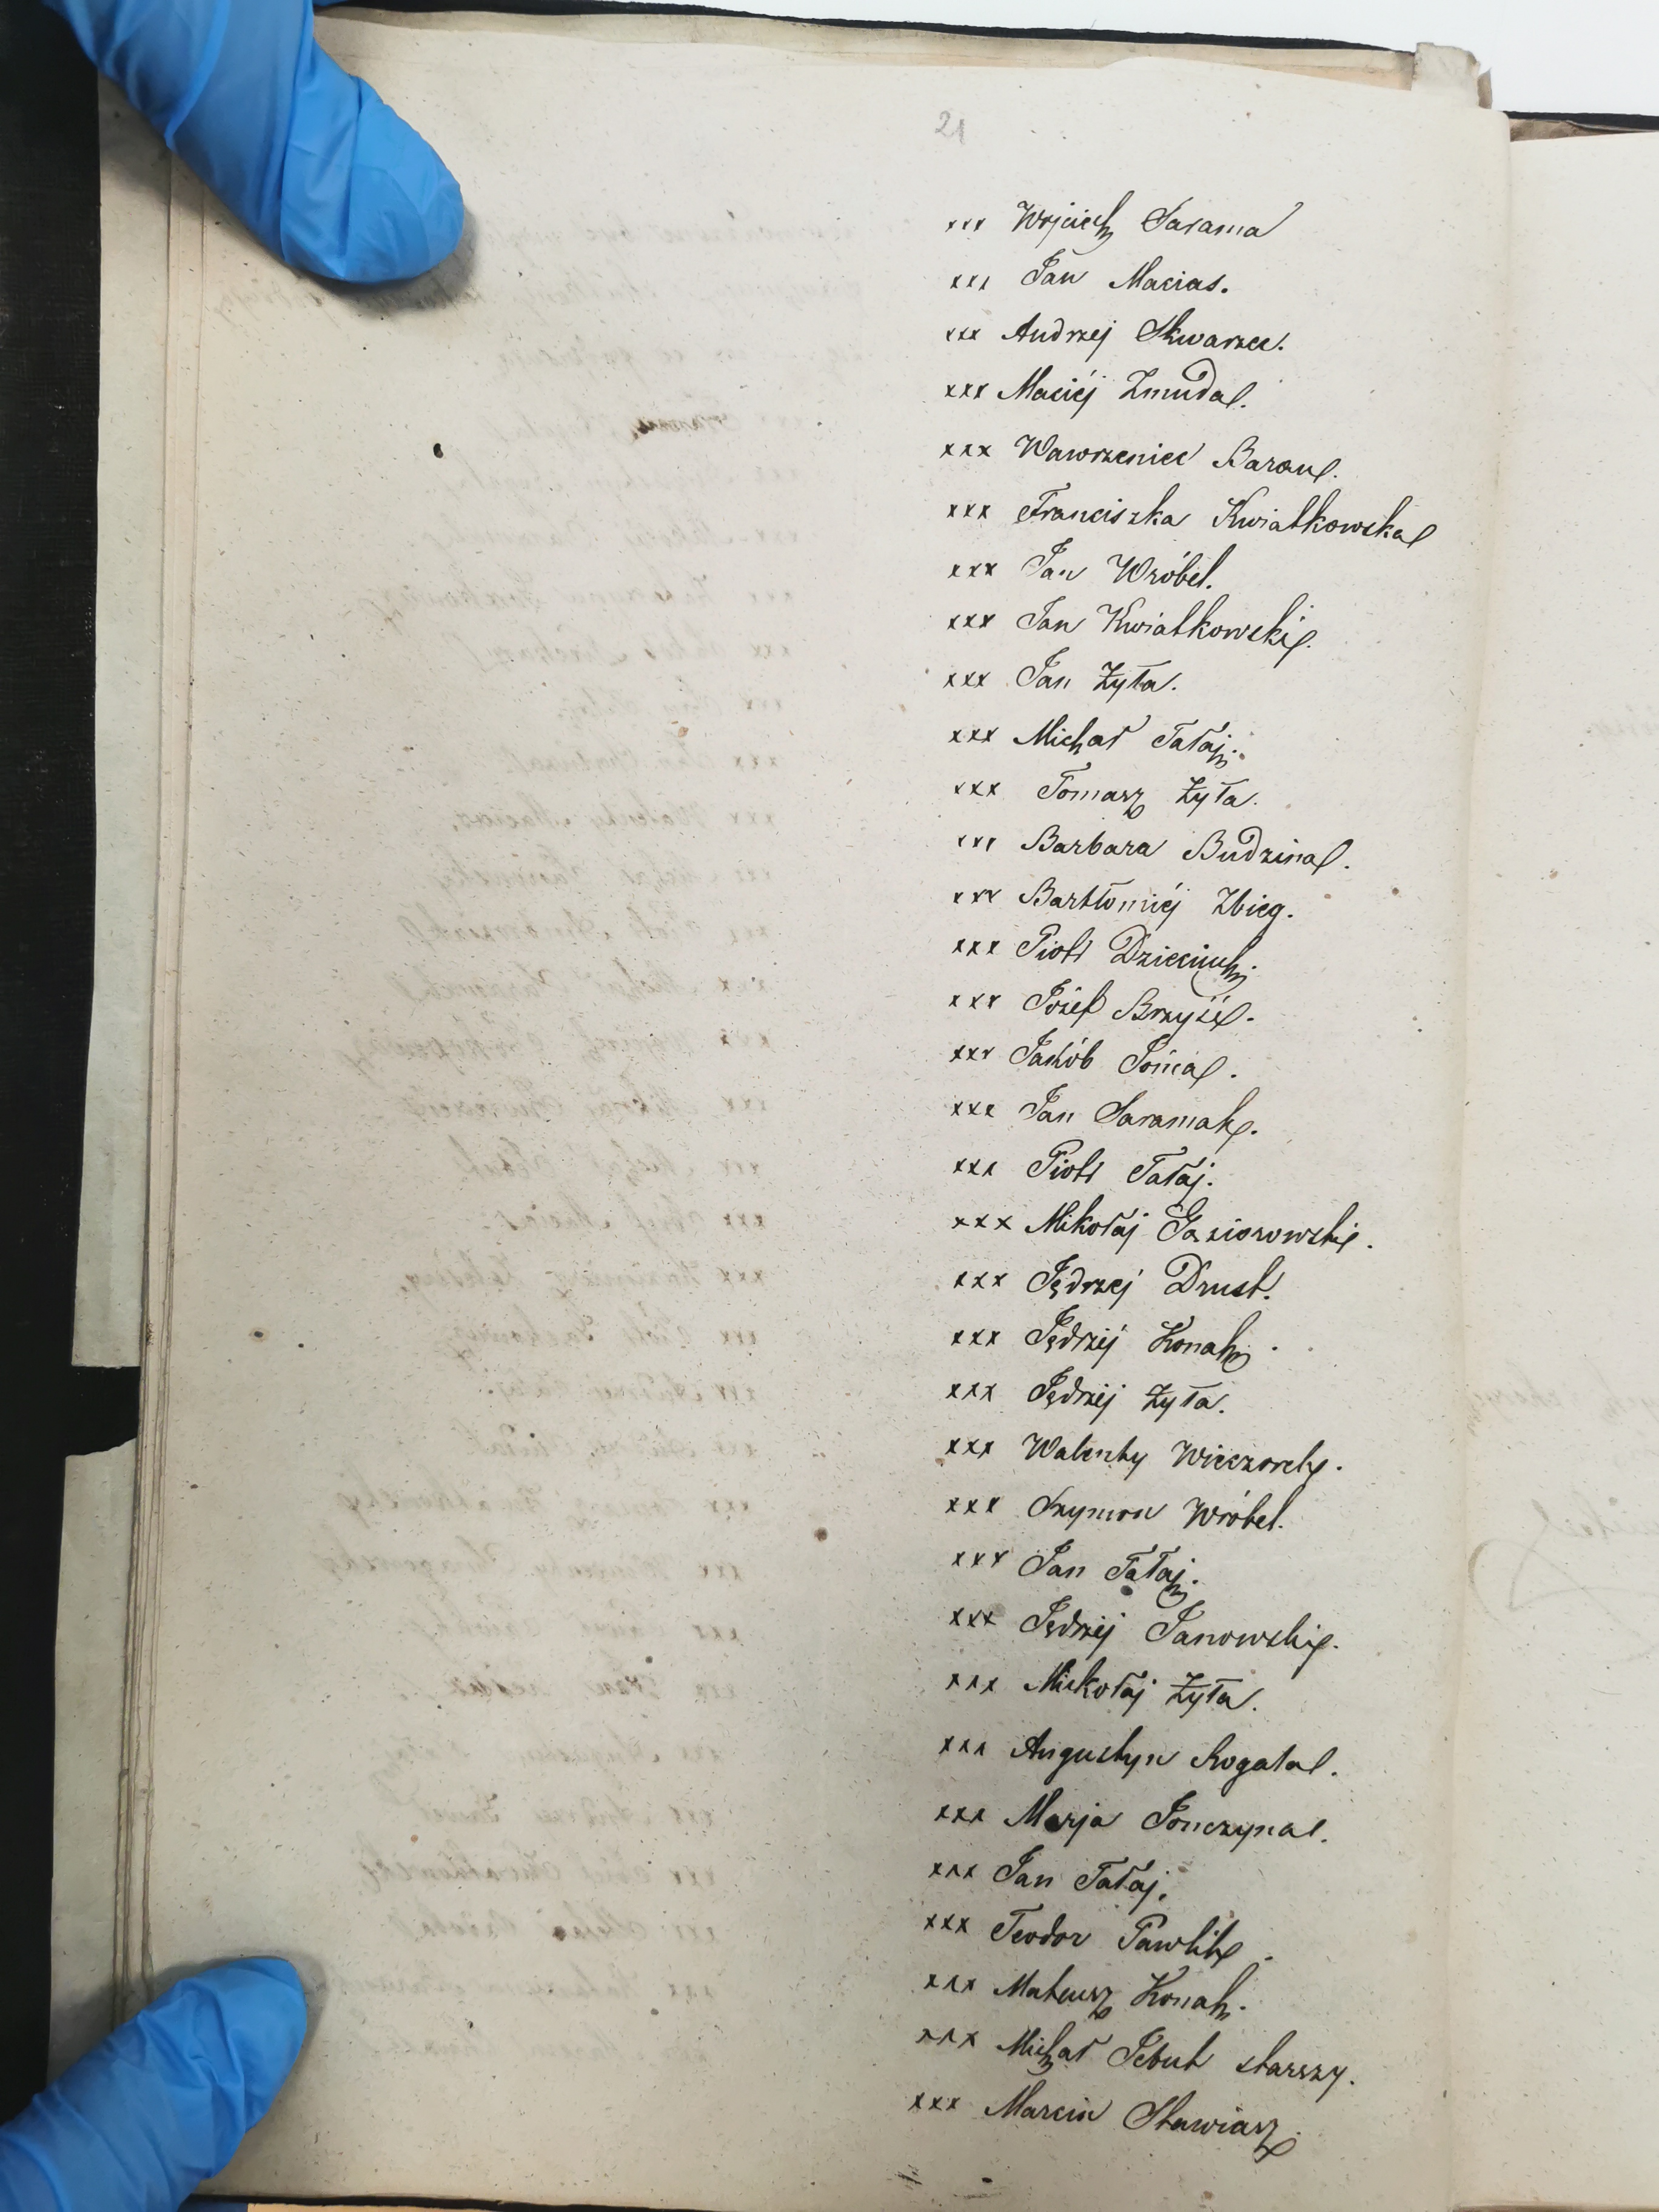 21
xxx Wojciech Sarama
xxx Jan Macias.
xxx Andrzej Skwarzec.
xxx Maciéj Zmuda.
xxx Wawrzeniec Baran.
xxx Franciszka Kwiatkowska
xxx Jan Wróbel.
xxx Jan Kwiatkowski.
xxx Jan Żyła.
xxx Michał Tałaj.
xxx Tomasz Żyła.
xxx Barbara Budzina.
xxx Bartłomiéj Zbieg.
xxx Piotr Dzieciuch.
xxx Józef Brzyś.
xxx Jakób Jońca.
xxx Jan Saramak.
xxx Piotr Tałaj.
xxx Mikołaj Gąsiorowski.
xxx Jędrzej Drust.
xxx Jędrzéj Konak.
xxx Jędrzéj Żyła.
xxx Walenty Wieczorek.
xxx Szymon Wróbel.
xxx Jan Tałaj.
xxx Jędrzéj Janowski.
xxx Mickołaj Żyła.
xxx Augustyn Rogala.
xxx Marja Jończyna.
xxx Jan Tałaj.
xxx Teodor Pawlik.
xxx Mateusz Konak.
xxx Michał Jebut starszy.
xxx Marcin Stawiarz.